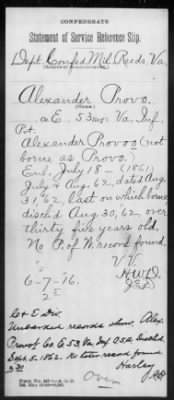 CONFEDERATE
Statement of Service Reference Slip.
Dept. Confed. Mil. Recds. Va.
Alexander Provo.
(Name.)
Co. E. 53 Va. Inf.
Pvt.
Alexander Provoo (not
borne as Provo.)
Enl. July 18 - (1861)
July & Aug. 62, dated Aug.
31, 62, last on which borne
disch'd Aug. 30, 62, over
thirty five years old.
No P. of W. record found
6-7-16.
C & E Div.
Unbound records show Alex.
Provost Co E 53 Va Inf. C.S.A. Dischd
Sept. 5, 1862. No later record found
Harley
Over